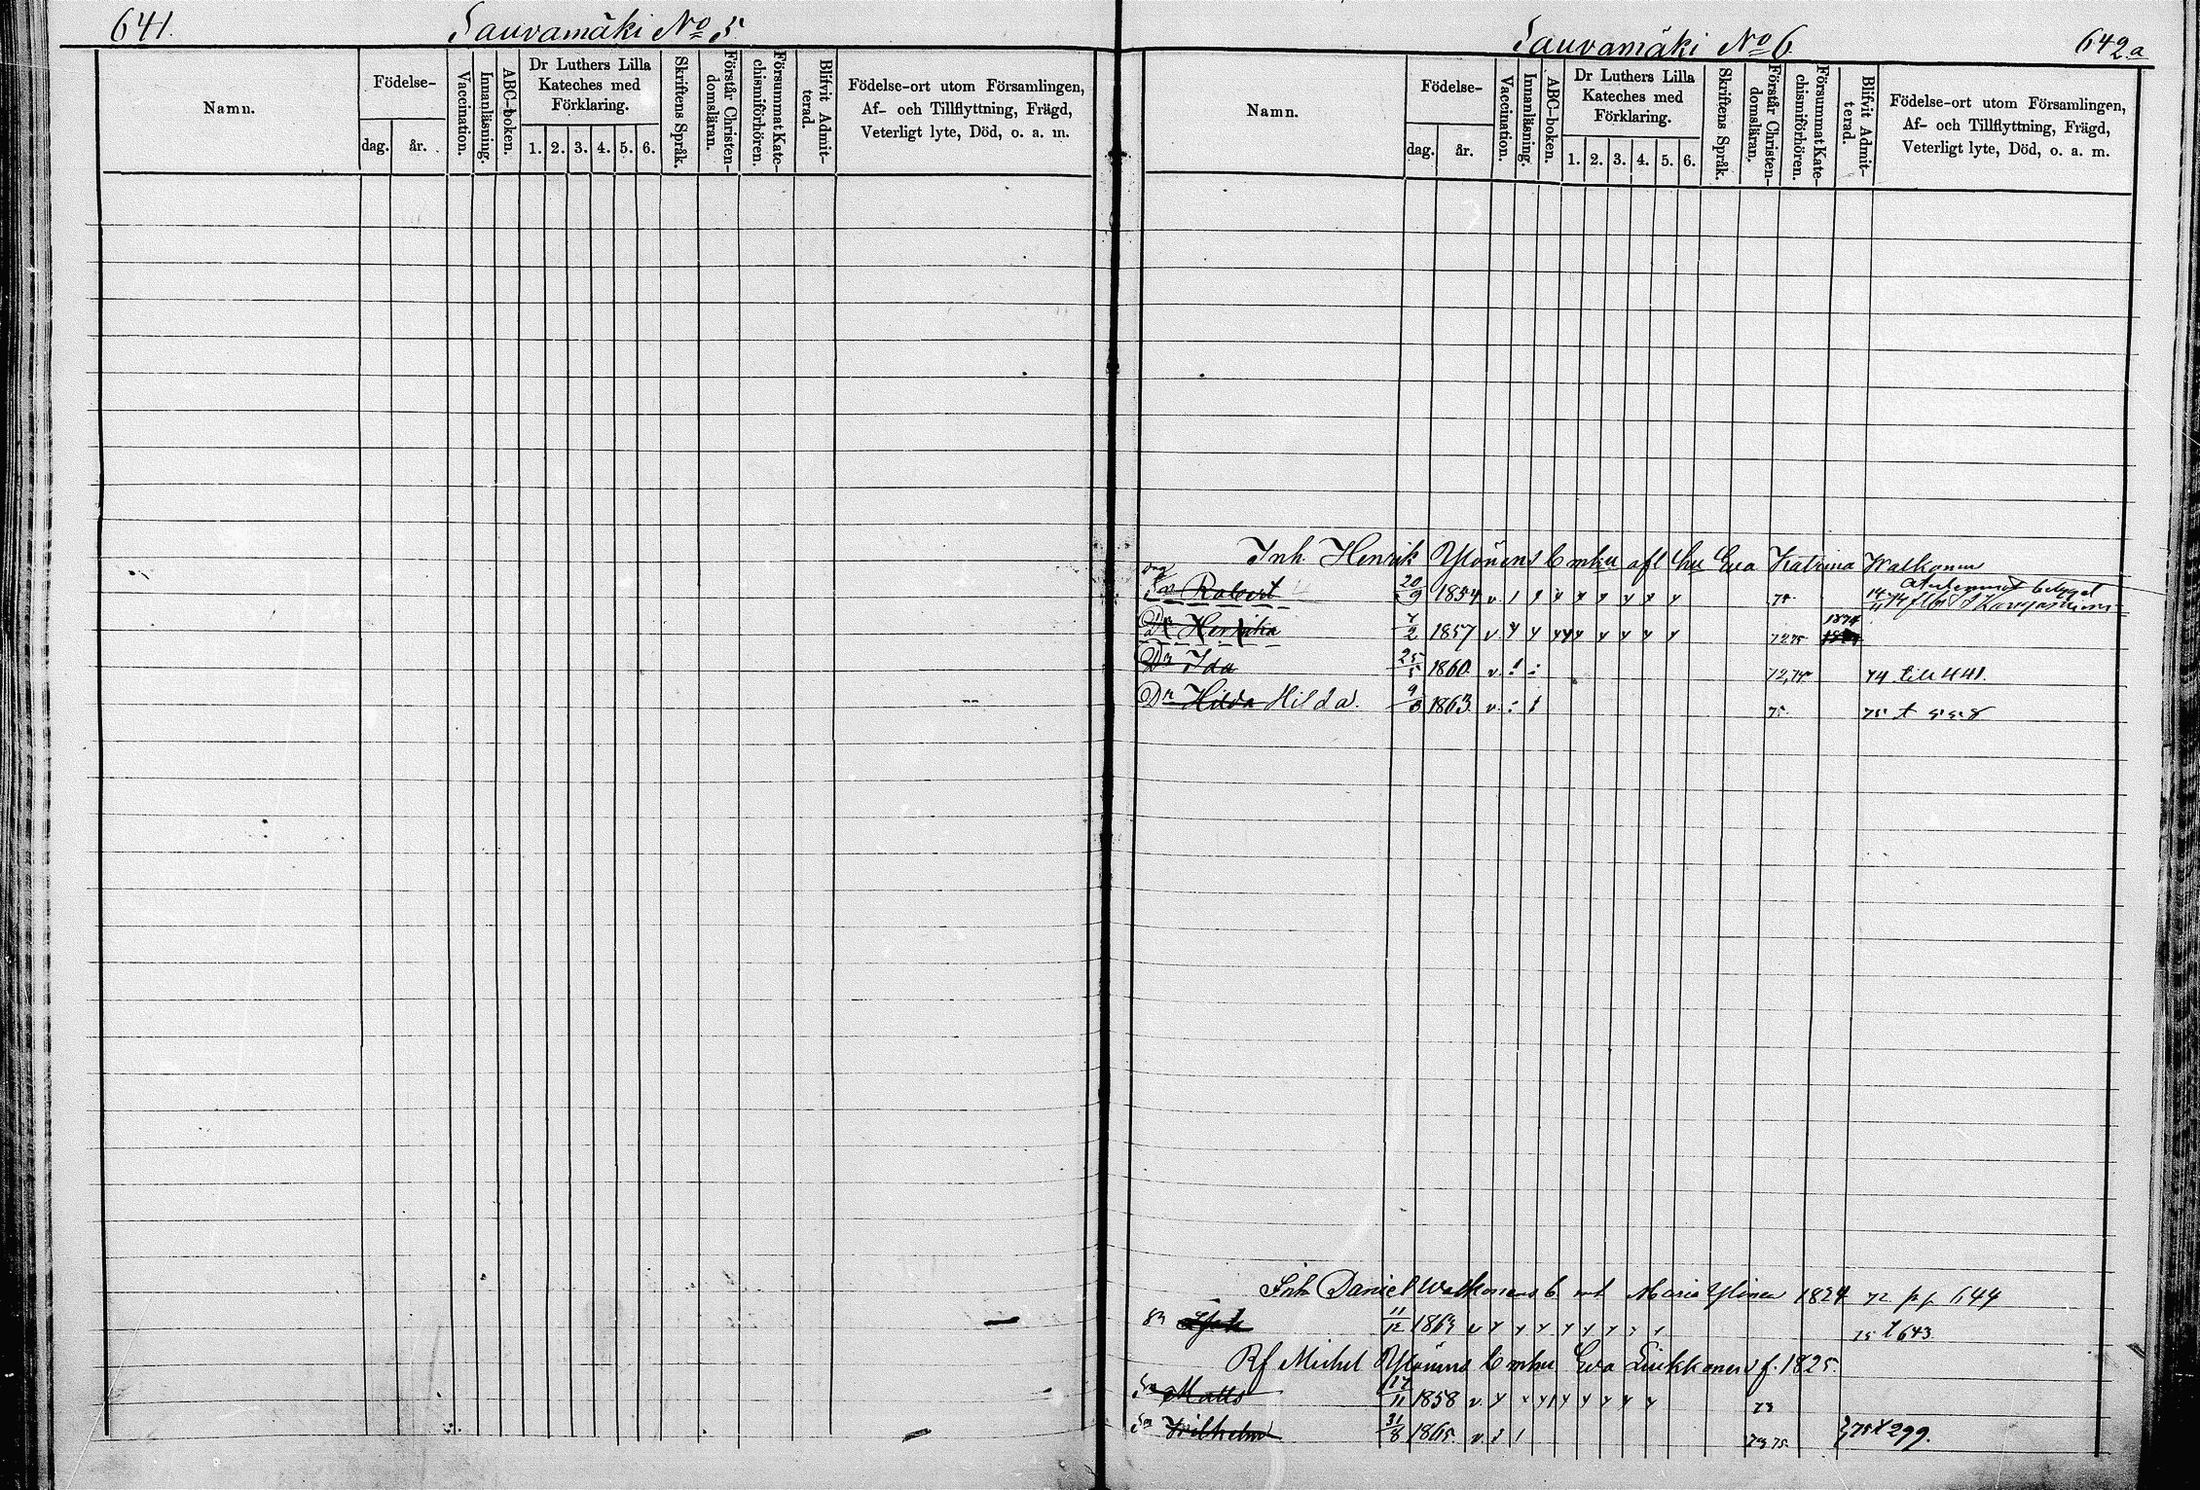 641.
Sauvamäki No 5
Namn.
Födelse-
dag.
år.
Vaccination.
Innanläsning.
ABC-boken.
Dr Luthers Lilla
Kateches med
Förklaring.
1. 2. 3. 4. 5. 6.
Skriftens Språk.
Förstår Christen-
domsläran.
Försummat Kate-
chismiförhören.
Blifvit Admit-
terad.
Födelse-ort utom Församlingen,
Af- och Tillflyttning, Frägd,
Veterligt lyte, Död, o. a. m.
Sauvamäki No 6
642a
Namn.
Födelse-
dag.
år.
Vaccination.
Innanläsning.
ABC-boken.
Dr Luthers Lilla
Kateches med
Förklaring.
1. 2. 3. 4. 5. 6.
Skriftens Språk.
Förstår Christen-
domsläran.
Försummat Kate-
chismiförhören.
Blifvit Admit-
terad.
Födelse-ort utom Församlingen,
Af- och Tillflyttning, Frägd,
Veterligt lyte, Död, o. a. m.
Inh. Henrik Ylönens b m hu Eva Katrina Walkonen
Sn Robert 20/9 1854 v 75
Henrika 7/2 1857 v 72 75 1874
Dr Ida 25/5 1860 v 72,75 74 till 441.
Dr Hilda Hilda. 9/8 1863 v 75 75 t 558
Inh Daniel Walkonens b m Maria Ylönen 1824 72 pp 644
Sn 11/12 1863 v 75 t 643
Rf Michel Ylönens b m hu Eva Liukkonen f. 1825.
Sn Matts 17/11 1858 v 73
Sn Wilhelm 31/8 1865. v 73 75 75 t 299.